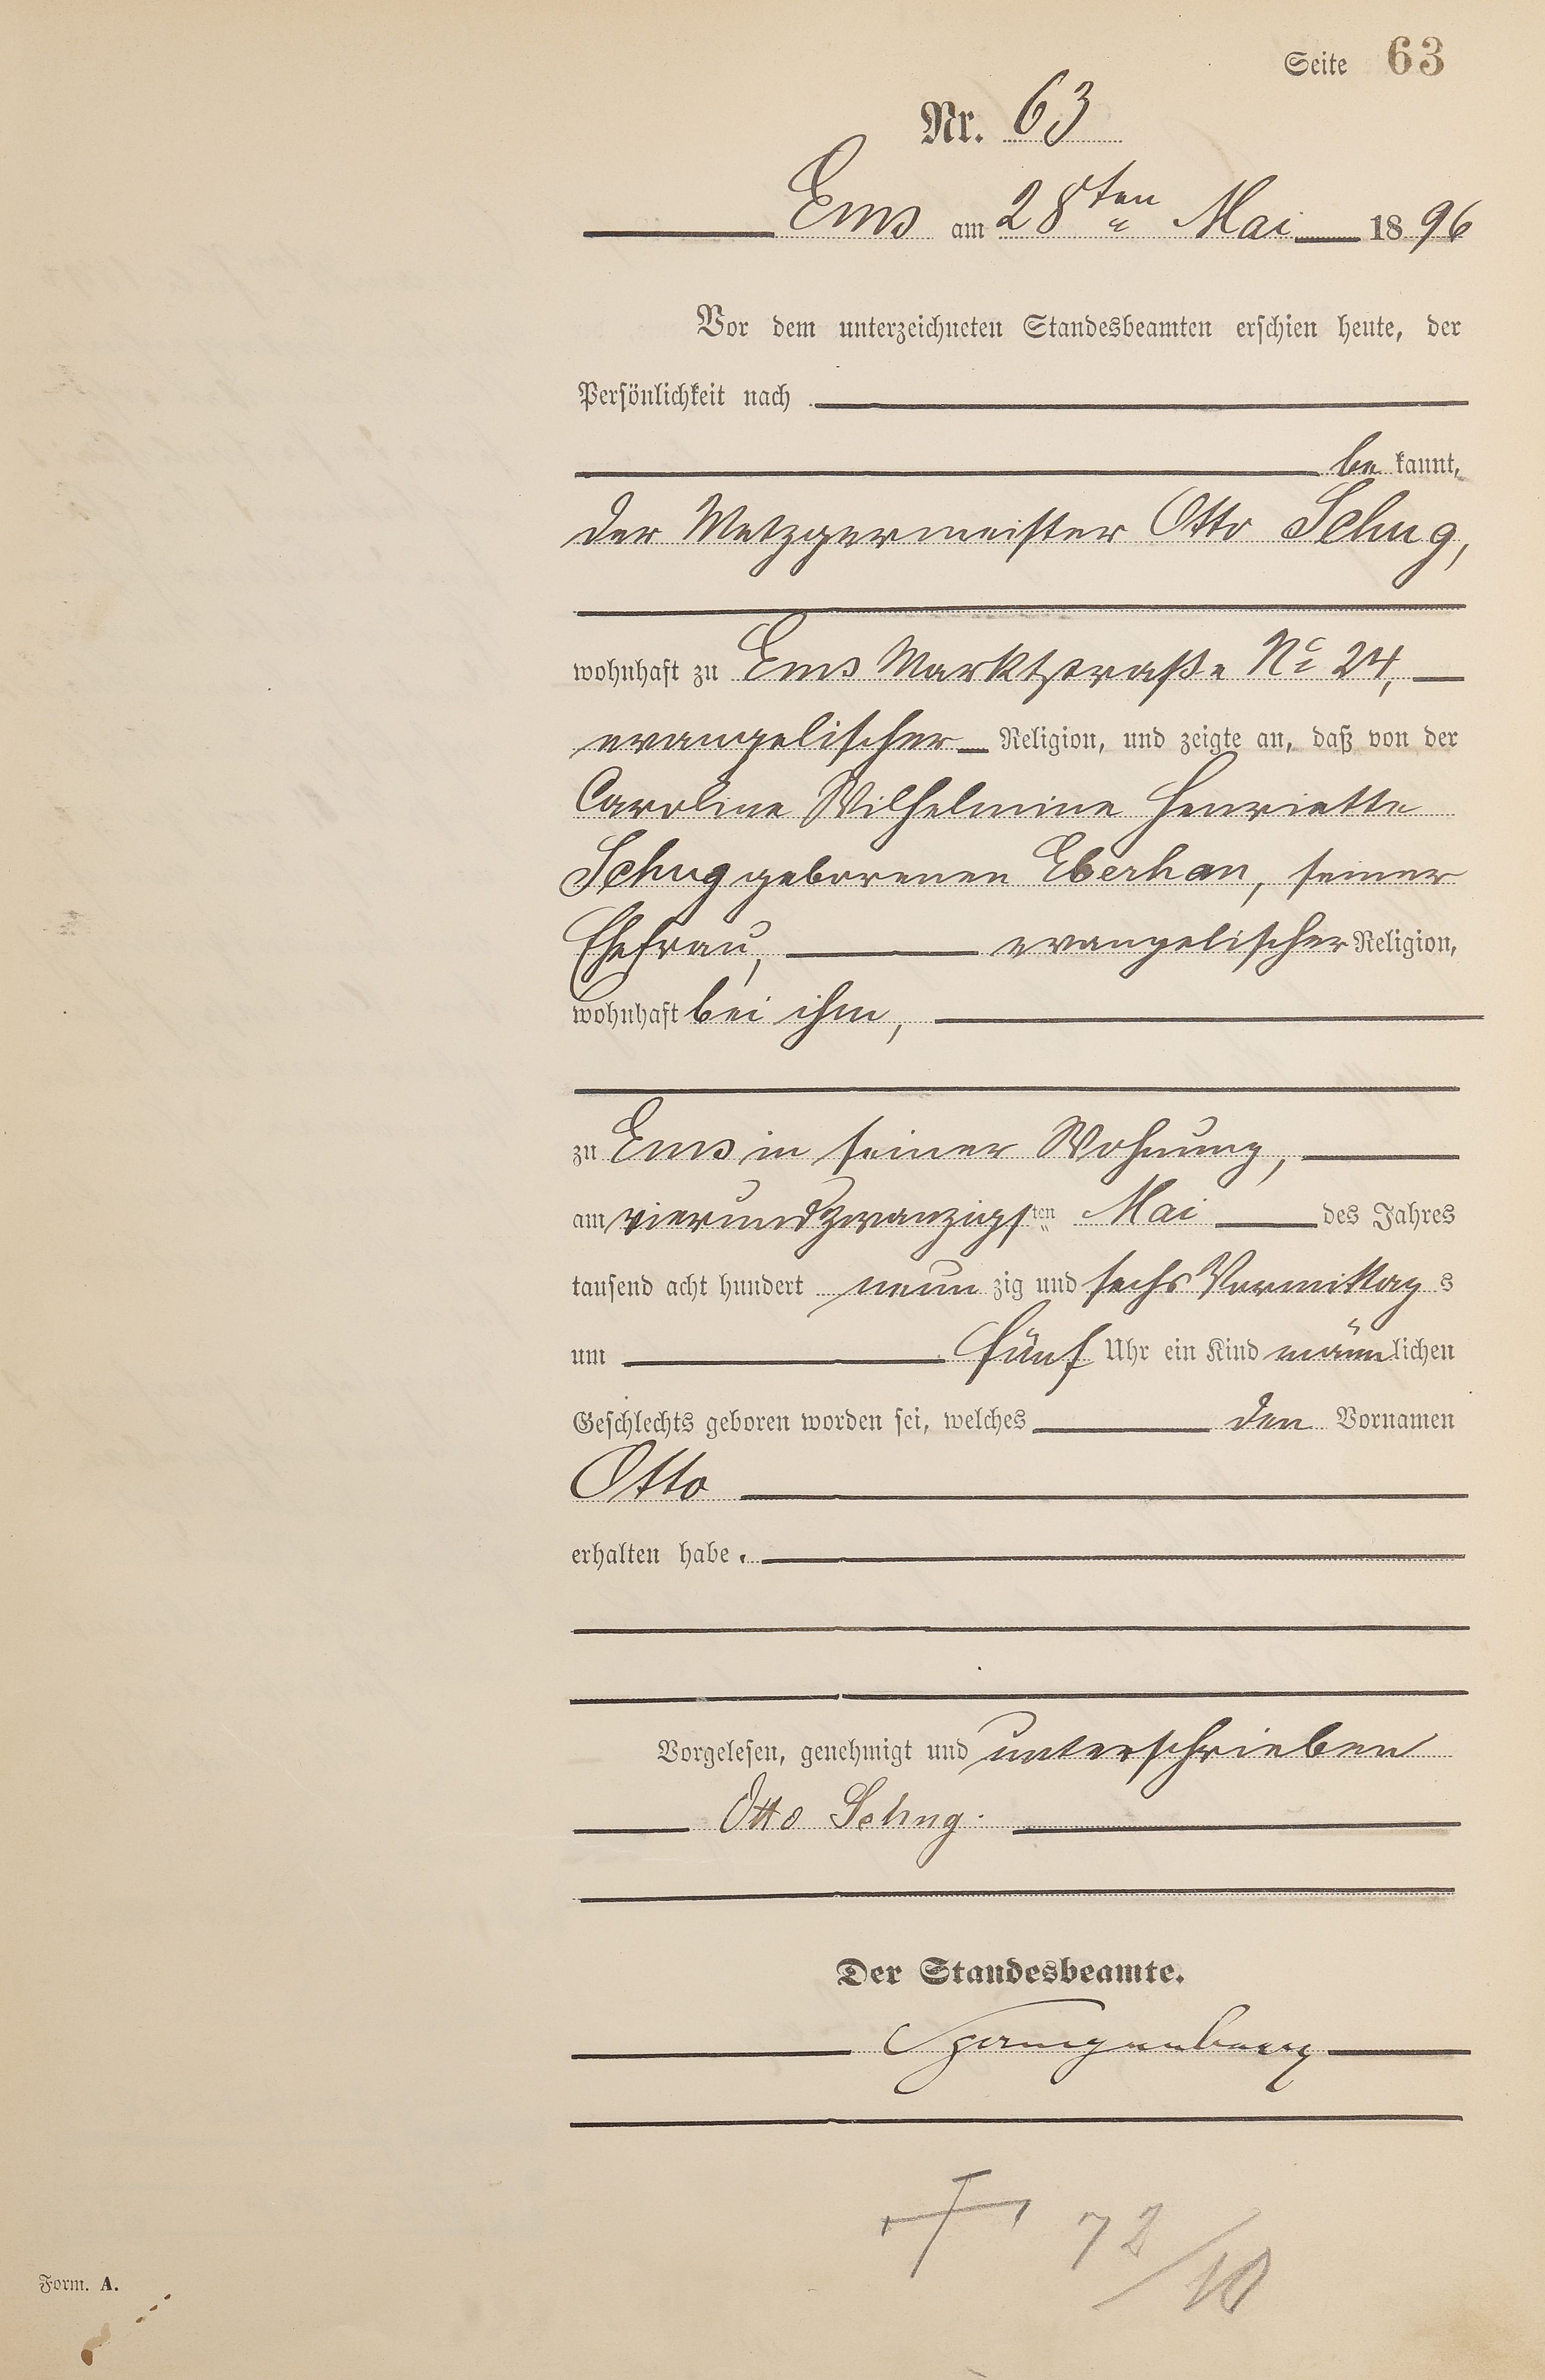 Seite 63
Nr. 63
Ems am 28ten Mai 1896
Vor dem unterzeichneten Standesbeamten erschien heute, der
Persönlichkeit nach
bekannt,
der Metzgermeister Otto Schug,
wohnhaft zu Ems Marktstraße No 24,
evangelischer Religion, und zeigte an, daß von der
Caroline Wilhelmine Henriette
Schug geborenen Eberhan, seiner
Ehefrau, evangelischer Religion,
wohnhaft bei ihm,
zu Ems in seiner Wohnung,
am vierundzwanzigsten Mai des Jahres
tausend acht hundert neunzig und sechs Vormittags
um fünf Uhr ein Kind männlichen
Geschlechts geboren worden sei, welches den Vornamen
Otto
erhalten habe.
Vorgelesen, genehmigt und unterschrieben
Otto Schug.
Der Standesbeamte.
Spangenberg
72/10
Form. A.